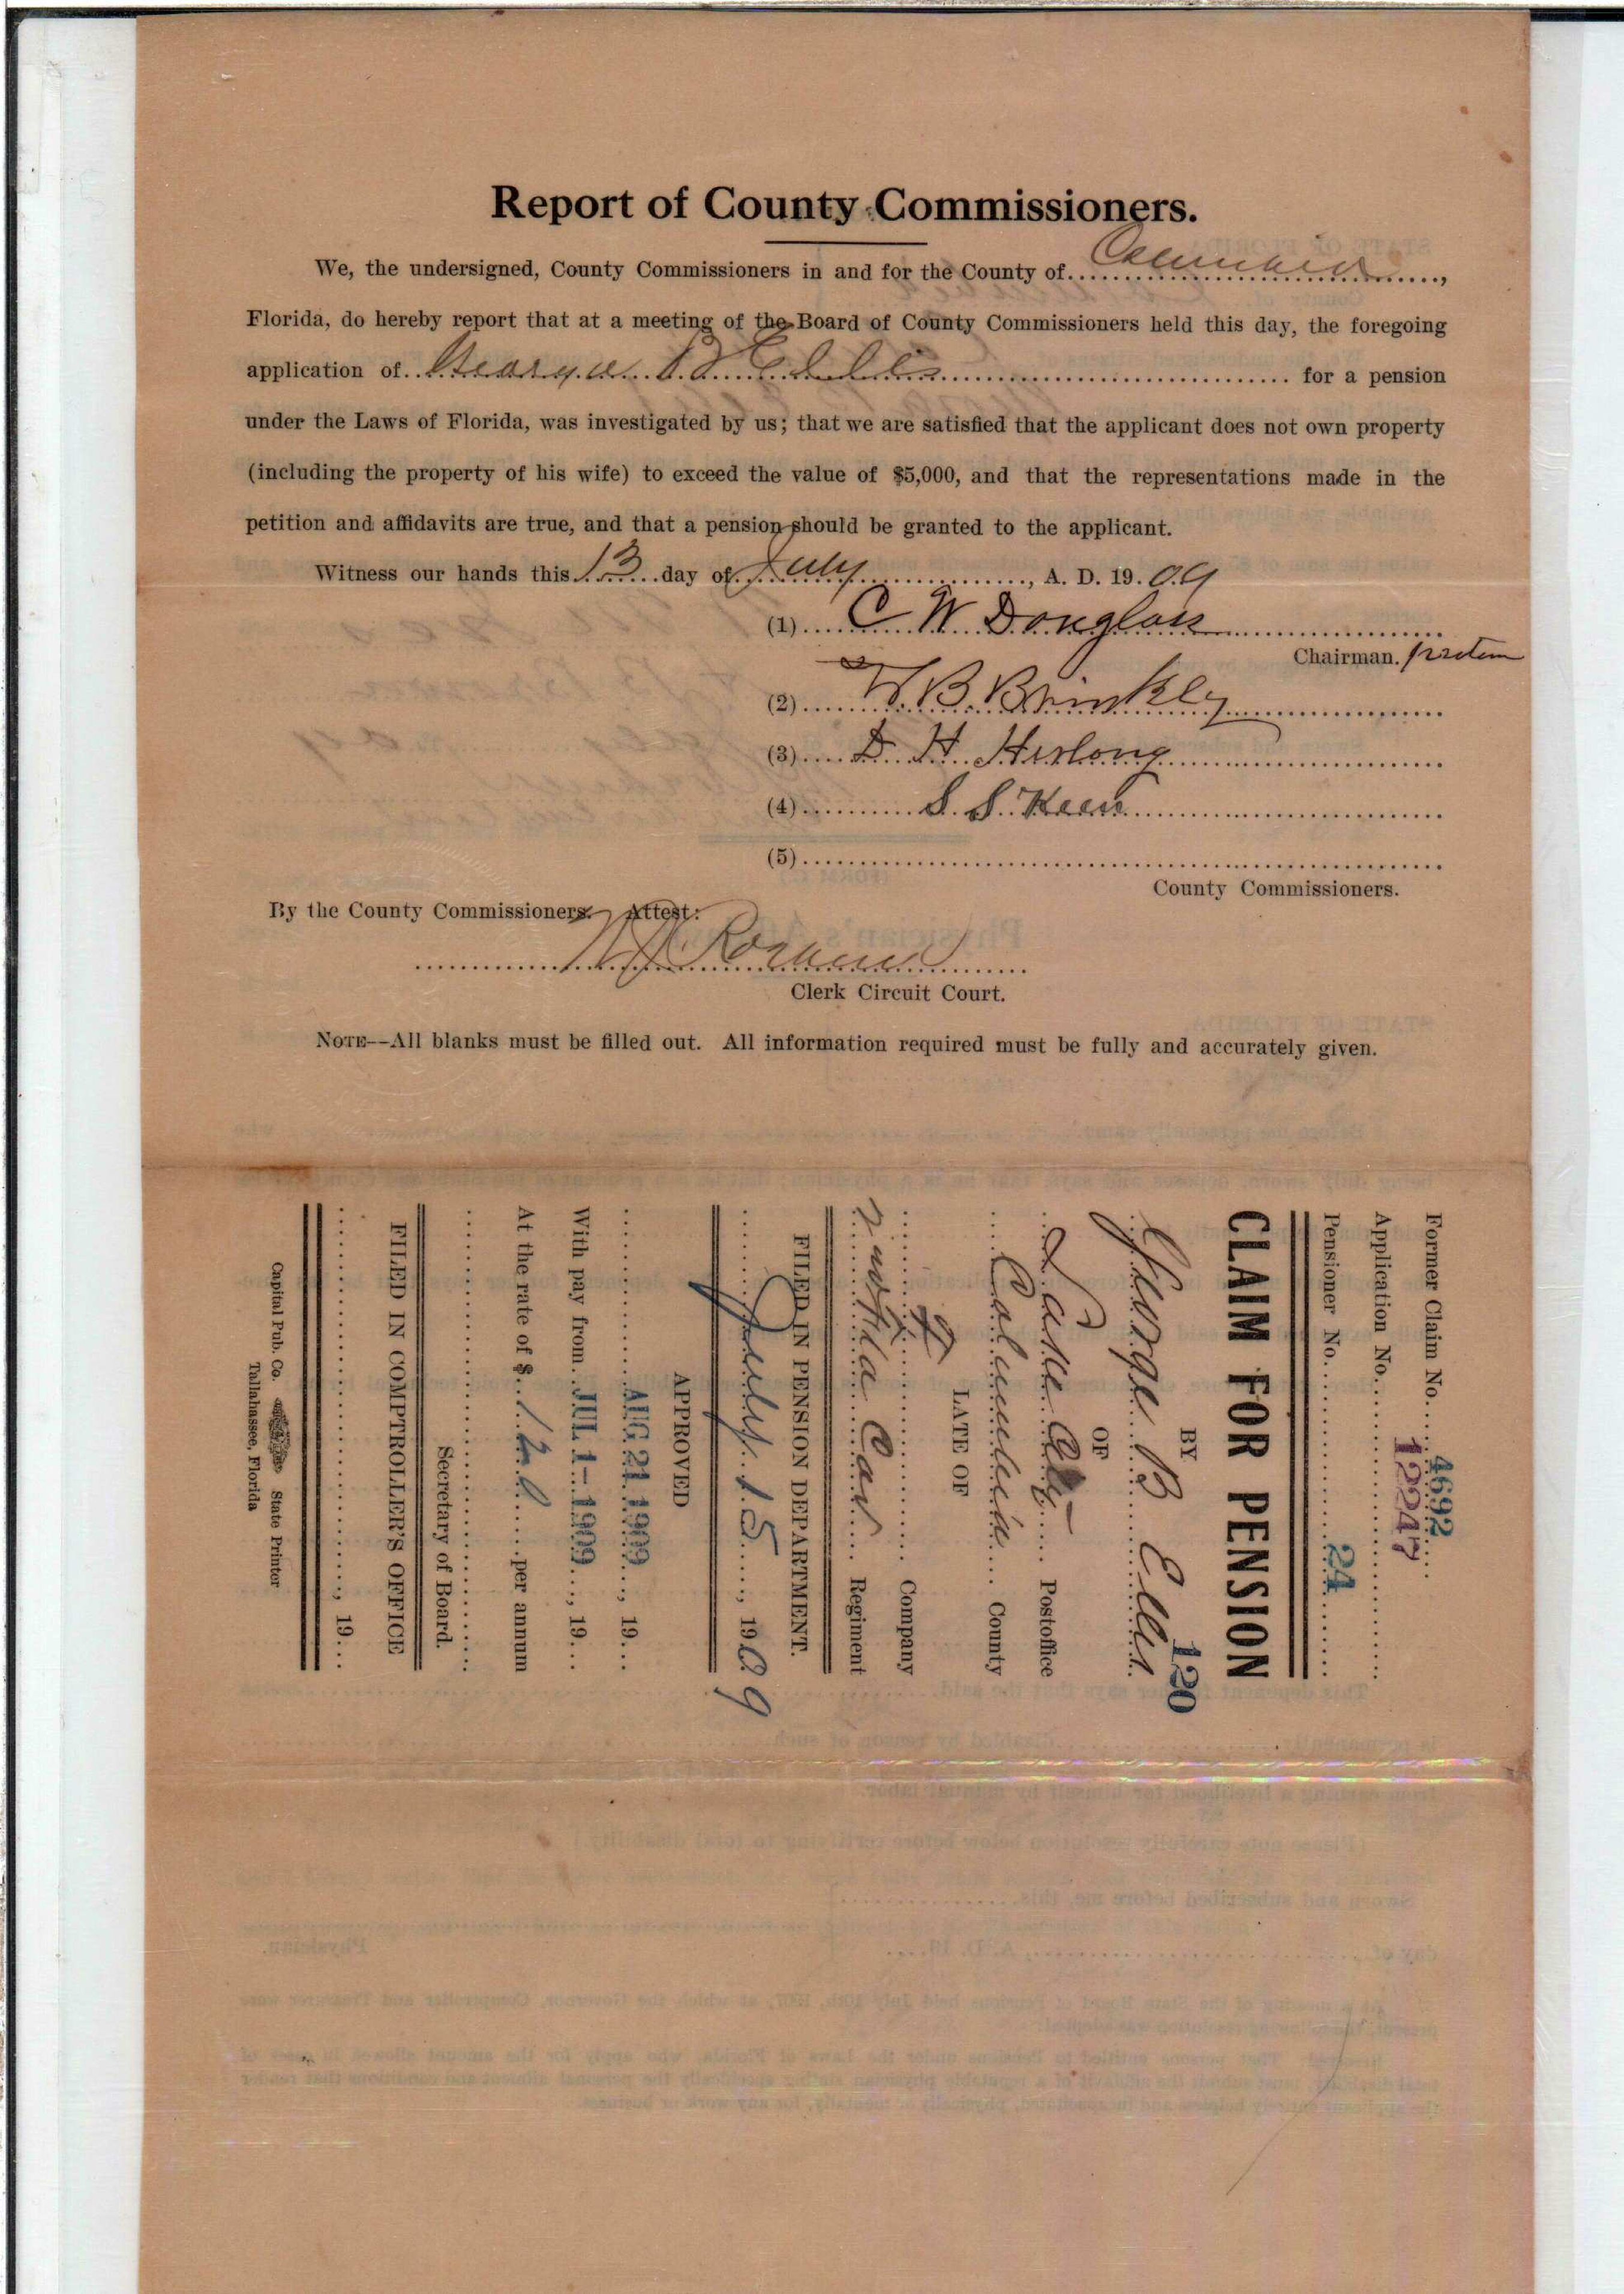 Report of County Commissioners.
We, the undersigned, County Commissioners in and for the County of Columbia,
Florida, do hereby report that at a meeting of the Board of County Commissioners held this day, the foregoing
application of George B Ellis for a pension
under the Laws of Florida, was investigated by us; that we are satisfied that the applicant does not own property
(including the property of his wife) to exceed the value of $5,000, and that the representations made in the
petition and affidavits are true, and that a pension should be granted to the applicant.
Witness our hands this 13 day of July, A. D. 1909
(1) C W Douglass
Chairman. protem
(2) W. B. Brinkley
(3) D. H. Herlong
(4) S. S. Keen
(5)
County Commissioners.
By the County Commissioners. Attest:
Clerk Circuit Court.
NOTE--All blanks must be filled out. All information required must be fully and accurately given.
Former Claim No. 4692
Application No. 12247
Pensioner No. 24
CLAIM FOR PENSION
120
BY
George B Ellis
OF
Lake City Postoffice
Columbia County
LATE OF
Company
2nd Fla Cav Regiment
FILED IN PENSION DEPARTMENT.
July 15, 1909
APPROVED
AUG 21 1909, 19
With pay from JUL 1-1909, 19
At the rate of $ 120 per annum
Secretary of Board.
FILED IN COMPTROLLER'S OFFICE
, 19
Capital Pub. Co. State Printer
Tallahassee, Florida